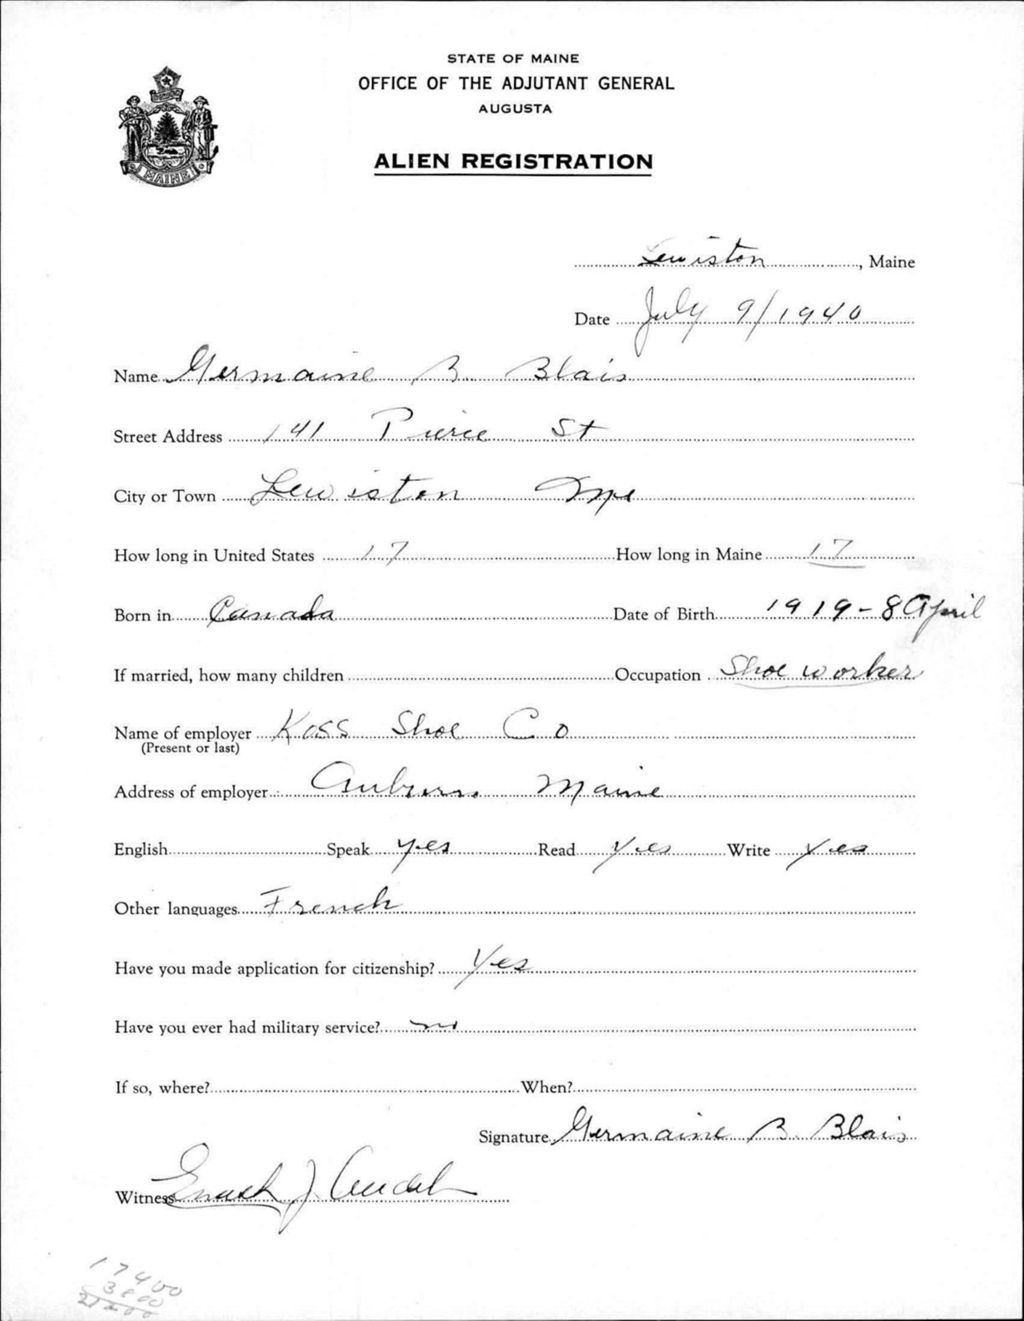 STATE OF MAINE
OFFICE OF THE ADJUTANT GENERAL
AUGUSTA
ALIEN REGISTRATION
MAINE
Lewiston, Maine
Date July 9/1940
Name Germaine B. Blais
Street Address 141 Pierce St
City or Town Lewiston Me
How long in United States 17 How long in Maine 17
Born in Canada Date of Birth 1919-8 April
If married, how many children Occupation Shoe worker
Name of employer Koss Shoe Co
(Present or last)
Address of employer Auburn Maine
English Speak yes Read Yes Write Yes
Other languages French
Have you made application for citizenship? Yes
Have you ever had military service? no
If so, where? When?
Signature Germaine B. Blais
Witness J.
17400